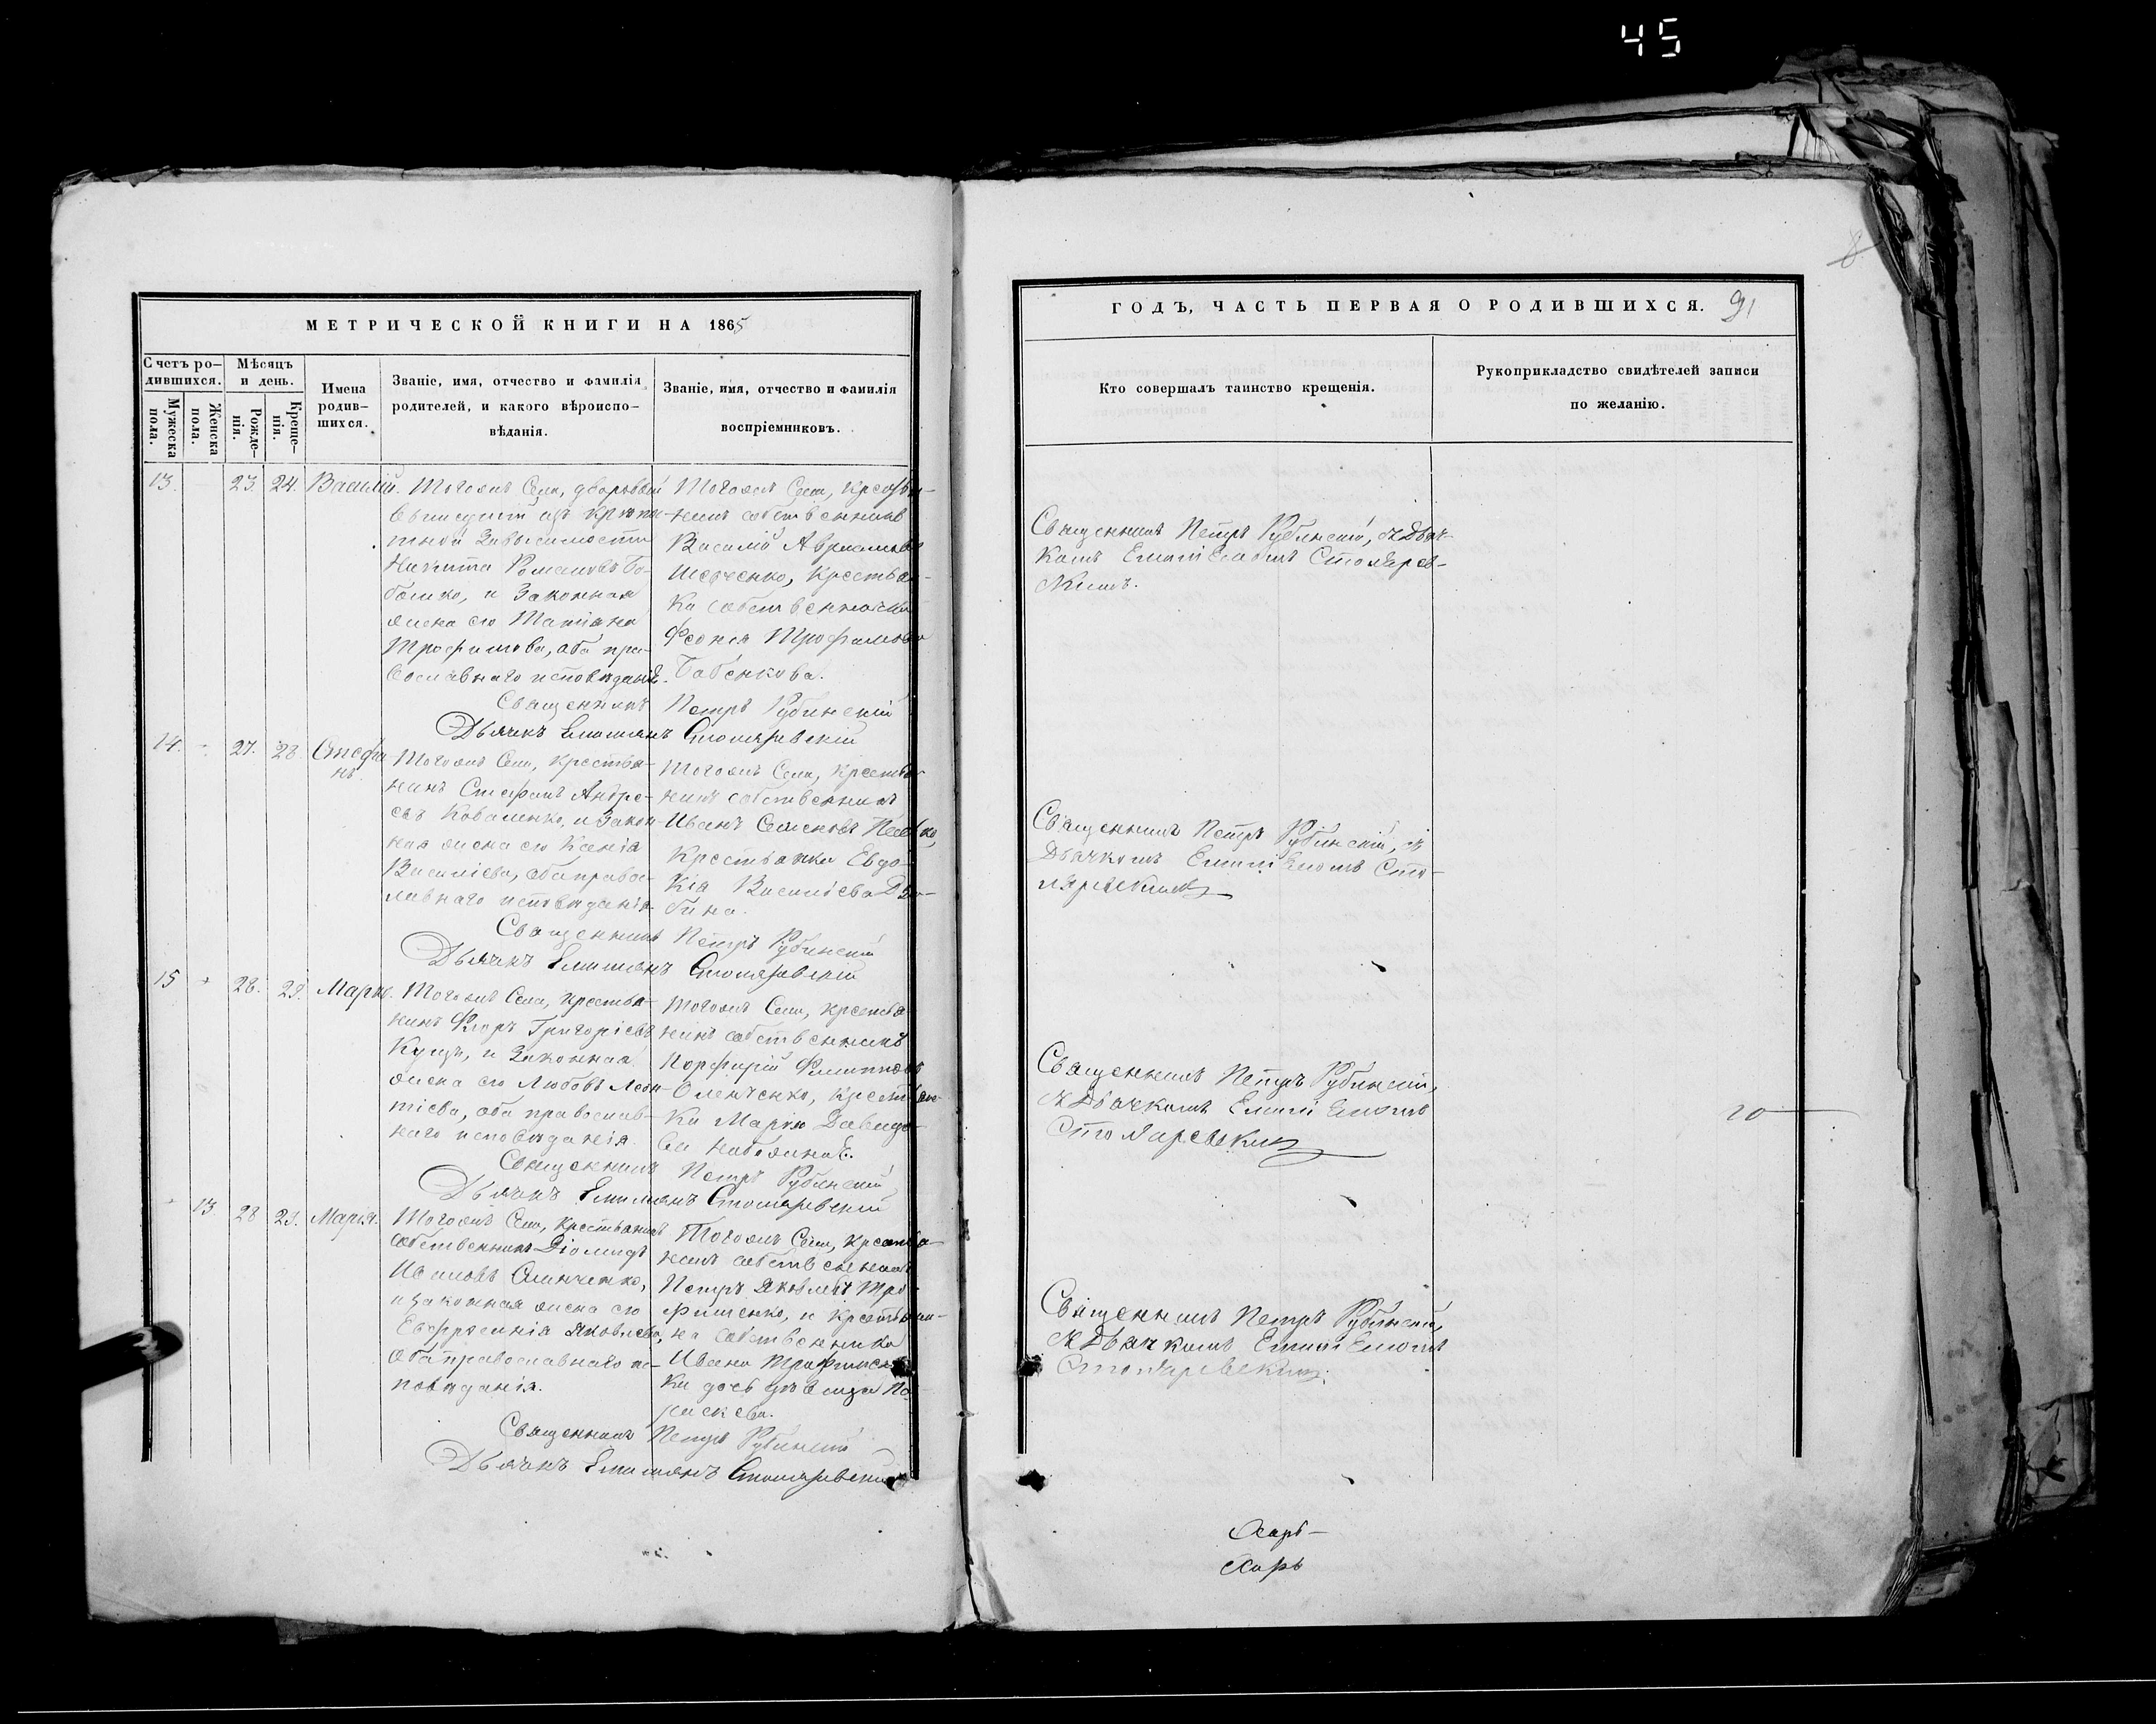 45
МЕТРИЧЕСКОЙ КНИГИ НА 1865
Счетъ ро-
дившихся.
Мужеска
пола.
Женска
пола.
Мѣсяцъ
и день.
Рожде-
нія.
Креще-
нія.
Имена
родив-
шихся.
Званіе, имя, отчество и фамилія
родителей, и какого вѣроиспо-
вѣданія.
Званіе, имя, отчество и фамилія
воспріемниковъ.
13. 23. 24. Василій.
Тогожъ Села, дворовый
вышедшій изъ крѣпо-
тной зависимости
Никита Романовъ Бо-
и Законная
жена его Татіана
Трофимова, оба пра-
вославнаго исповѣданія.
Тогожъ Села, крестья-
нинъ собственникъ
Василій
Шевченко, Крестьян-
ка собственника
Феонія Трофимова
Бабенкова.
Священникъ Петръ Рубинскій
Дьячекъ Емиліанъ Столяревскій
14. 27. 28. Стефа
нъ.
Тогожъ Села, крестья-
нинъ Стефанъ Андре-
евъ Коваленко, и закон-
ная жена его Ксенія
Василіева, оба правос-
лавнаго исповѣданія.
Тогожъ Села, Крестья-
нинъ собственникъ
Иванъ Семеновъ
Крестьянка Евдо-
кія Василіева
бина.
Священникъ Петръ Рубинскій
Дьячекъ Емиліанъ Столяревскій
15 28. 29. Марко.
Тогожъ Села, крестья-
нинъ Флоръ Григоріевъ
Куцъ, и Законная
жена его Любовь Леон-
тіева, оба православ-
наго исповѣданія.
Тогожъ Села, крестья-
нинъ собственникъ
Порфирій Филипповъ
Крестьян-
ка Марія Давидо-
ва
Священникъ Петръ Рубинскій
Дьячекъ Емиліанъ Столяревскій
13 28 29. Марія.
Тогожъ Села, крестьянинъ
собственникъ Діомидъ
Ивановъ
и законная жена его
Евфросинія Яковлева,
оба православнаго ис-
повѣданія.
Тогожъ Села, крестья-
нинъ собственникъ
Петръ Яковлевъ Тро-
фименко, и Крестьяни-
на собственника
Ивана Трофимен-
ки дочь дѣвица Па-
раскева.
Священникъ Петръ Рубинскій
Дьячекъ Емиліанъ Столяревскій
8
ГОДЪ, ЧАСТЬ ПЕРВАЯ О РОДИВШИХСЯ. 91
Кто совершалъ таинство крещенія.
Рукоприкладство свидѣтелей записи
по желанію.
Священникъ Петръ Рубинскій, съ Дьяч-
комъ Емиліаномъ Столярев-
скимъ.
Священникъ Петръ Рубинскій, съ
Дьячкомъ Емиліаномъ Сто-
ляревскимъ
Священникъ Петръ Рубинскій,
съ Дьячкомъ Емиліаномъ
Столяревскимъ
Священникъ Петръ Рубинскій,
съ Дьячкомъ Емиліаномъ
Столяревскимъ.